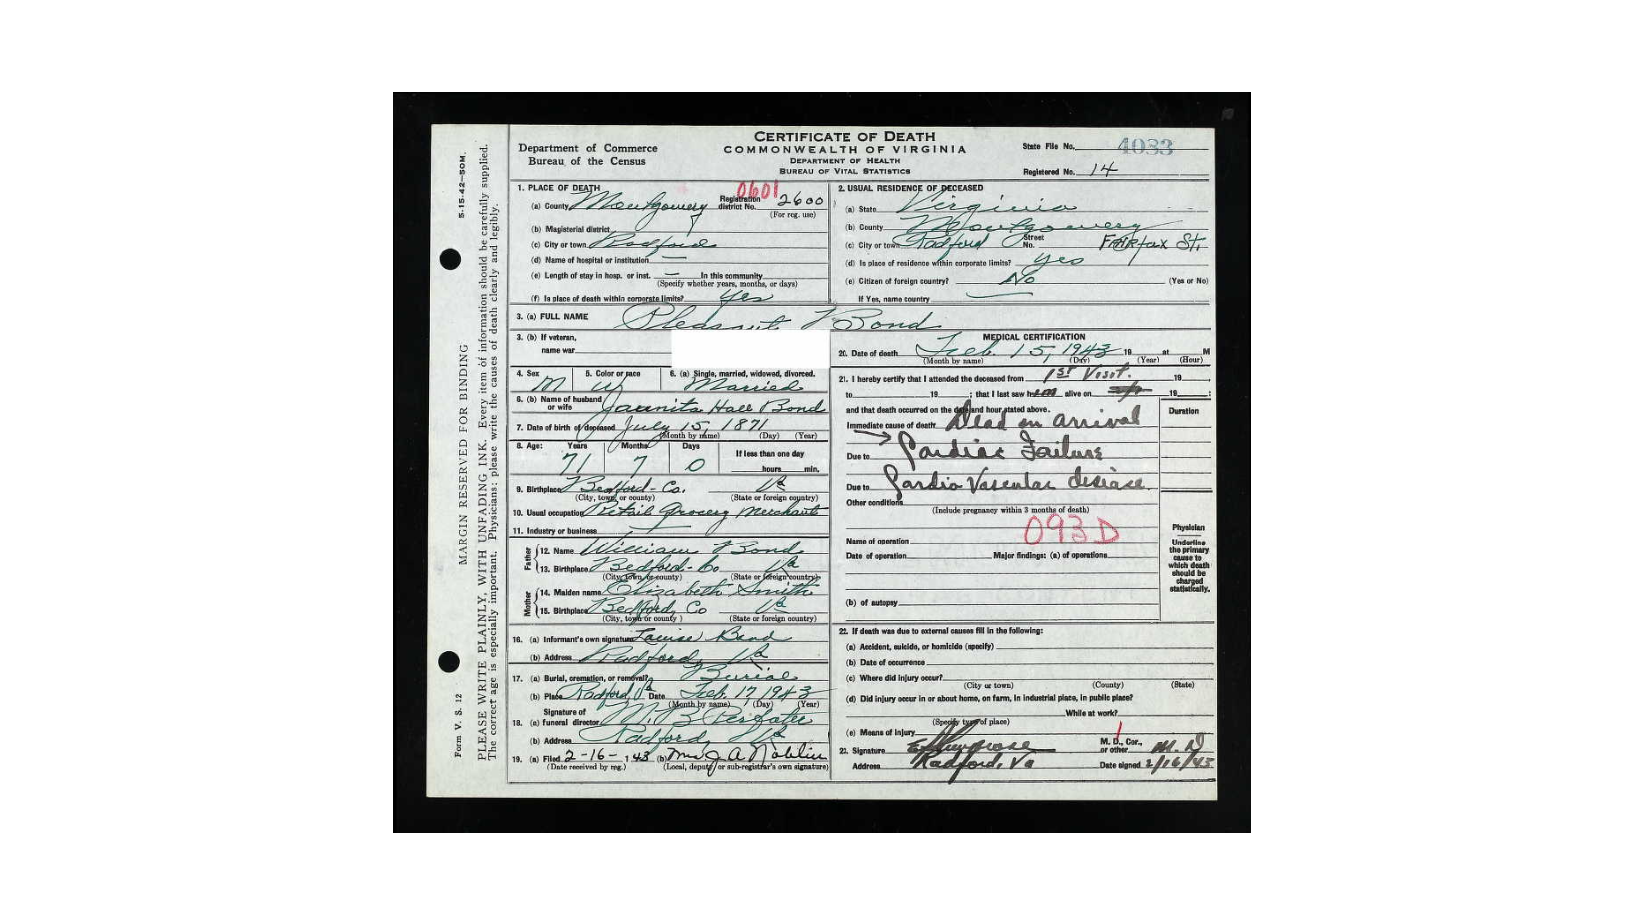 CERTIFICATE OF DEATH
COMMONWEALTH OF VIRGINIA
DEPARTMENT OF HEALTH
BUREAU OF VITAL STATISTICS
Department of Commerce
Bureau of the Census
State File No. 4033
Registered No. 14
5-15-42—50M.
MARGIN RESERVED FOR BINDING
Form V. S. 12
PLEASE WRITE PLAINLY, WITH UNFADING INK. Every item of information should be carefully supplied.
The correct age is especially important. Physicians: please write the causes of death clearly and legibly.
1. PLACE OF DEATH
0601
(a) County Montgomery Registration district No. 2600
(For reg. use)
(b) Magisterial district
(c) City or town Radford
(d) Name of hospital or institution —
(e) Length of stay in hosp. or inst. — In this community
(Specify whether years, months, or days)
(f) Is place of death within corporate limits? yes
2. USUAL RESIDENCE OF DECEASED
(a) State Virginia
(b) County Montgomery
(c) City or town Radford Street No. Fairfax St.
(d) Is place of residence within corporate limits? yes
(e) Citizen of foreign country? No (Yes or No)
If Yes, name country —
3. (a) FULL NAME Pleasant Bond
3. (b) If veteran,
name war
4. Sex M 5. Color or race W 6. (a) Single, married, widowed, divorced. Married
6. (b) Name of husband or wife Jaunita Hall Bond
7. Date of birth of deceased July 15, 1871
(Month by name) (Day) (Year)
8. Age: Years Months Days If less than one day
71 7 0 hours min.
9. Birthplace Bedford-Co. Va
(City, town, or county) (State or foreign country)
10. Usual occupation Retail Grocery Merchant
11. Industry or business —
Father
12. Name William Bond
13. Birthplace Bedford-Co Va
(City, town, or county) (State or foreign country)
Mother
14. Maiden name Elizabeth Smith
15. Birthplace Bedford, Co Va
(City, town or county ) (State or foreign country)
16. (a) Informant's own signature Louise Bond
(b) Address Radford, Va
17. (a) Burial, cremation, or removal? Burial
(b) Place Radford, Va Date Feb. 17 1943
(Month by name) (Day) (Year)
Signature of
18. (a) funeral director M. B.
(b) Address Radford Va
19. (a) Filed 2-16- 1 43 (b) Mrs J A Noblin
(Date received by reg.) (Local, deputy or sub-registrar's own signature)
MEDICAL CERTIFICATION
20. Date of death Feb. 15, 1943 19 at M
(Month by name) (Day) (Year) (Hour)
21. I hereby certify that I attended the deceased from 1st Visit. 19
to 19 ; that I last saw alive on 19 ;
and that death occurred on the date and hour stated above.
Duration
Immediate cause of death Dead on arrival
Due to Cardiac Failure
Due to Cardio Vascular disease.
Other conditions
(Include pregnancy within 3 months of death)
093D
Name of operation
Date of operation Major findings: (a) of operations
(b) of autopsy
Physician
Underline
the primary
cause to
which death
should be
charged
statistically.
22. If death was due to external causes fill in the following:
(a) Accident, suicide, or homicide (specify)
(b) Date of occurrence
(c) Where did injury occur?
(City or town) (County) (State)
(d) Did injury occur in or about home, on farm, in industrial place, in public place?
While at work?
(Specify type of place)
(e) Means of injury
23. Signature M. D., Cor., or other M. D
Address Radford, Va Date signed 2/16/43